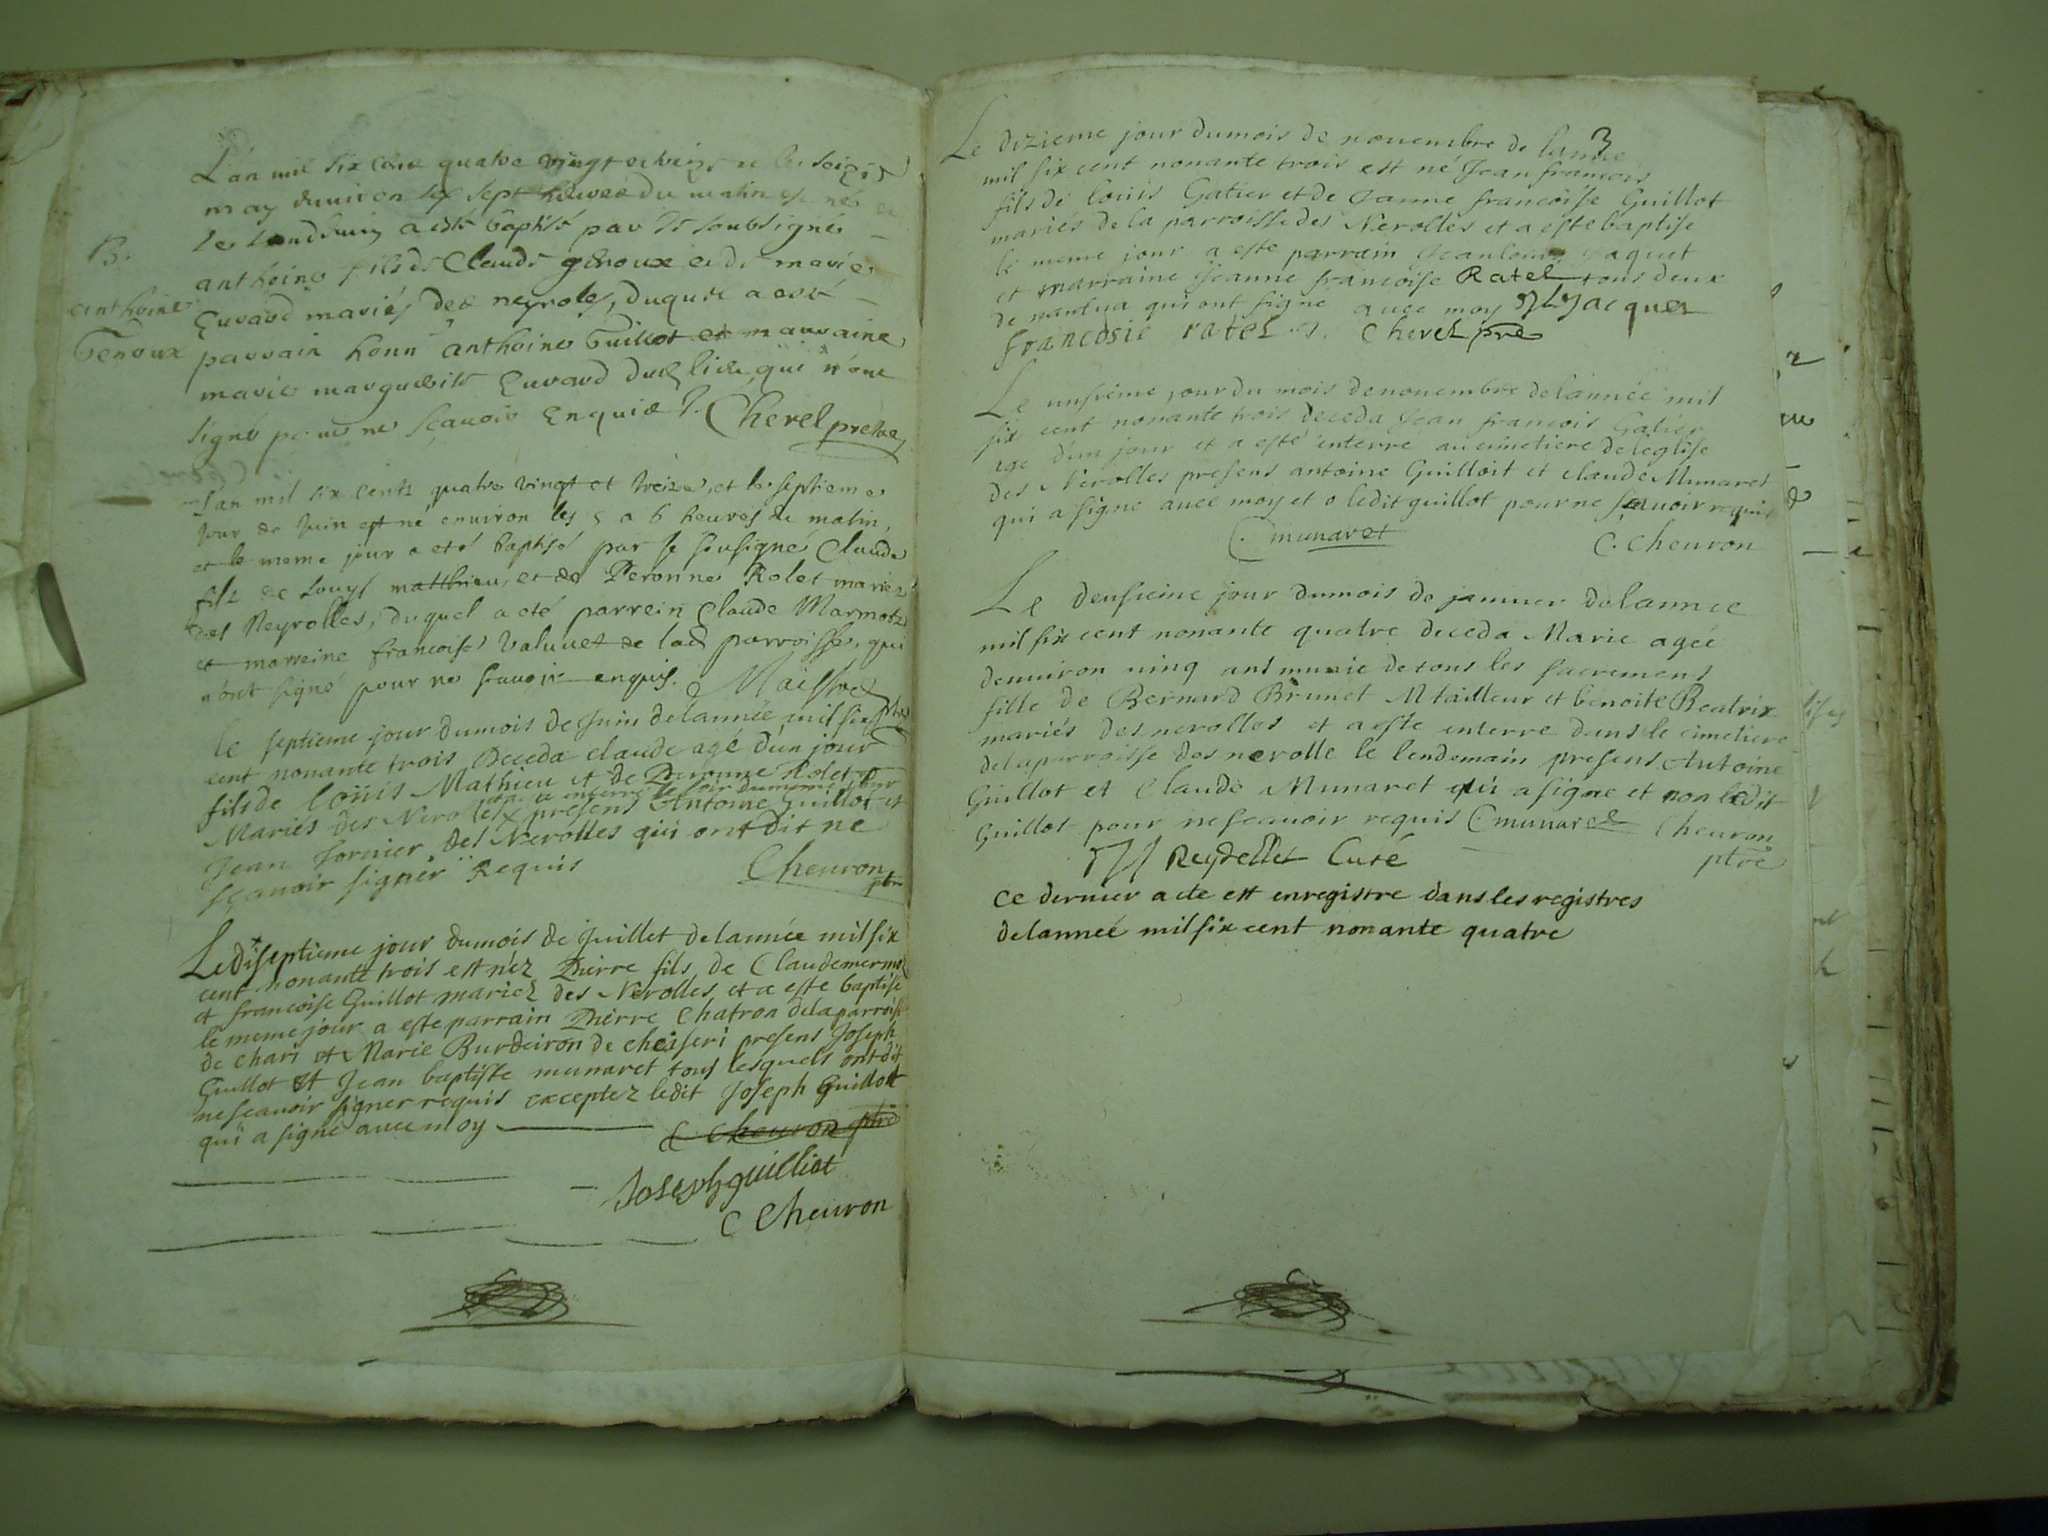 L'an mil six cent quatre vingt et treize et le seizie
may environ les sept heures du matin est né et
le lendemain a esté baptisé par le soubsigné
B.
anthoine fils de Claude genoux et de marie
anthoine
Genoux
Euvard mariés des neyroles, duquel a esté
parrain honn anthoine Guillot et marraine
marie marguerite Euvard du qui n'ont
signé pour ne sçavoir Enquis. Cherel pretre
L'an mil six cents quatre vingt et treize, et le septieme
jour de Juin est né environ les 5 a 6 heures du matin,
et le meme jour a eté baptisé par le sousigné Claude
fils de Louys matthieu, et de Peronne Rolet mariez
des Neyrolles, duquel a eté parrein Claude Marmotz
et marreine francoise valuuet de lad parroisse, qui
n'ont signé pour ne scavoir enquis. Maissiat
ptre
le septieme jour du mois de Juin de lannée mil six
cent nonante trois Deceda claude agé d'un jour
fils de loüis Mathieu et de Peronne Rolet
et a esté enterre le soir du meme jour
Mariés des Nerolles x presens Antoine Guillot et
Jean fornier des Nerolles qui ont dit ne
sçavoir signer Requis Cheuron
ptre
Le diseptieme jour du mois de Juillet de lannée mil six
cent nonante trois est néz Pierre fils de Claude mermo
et francoise Guillot mariez des Nerolles et a este baptisé
le meme jour a este parrain Pierre Chatron de la parroise
de chari et Marie Burdeiron de cheiseri presens Joseph
Guillot et Jean baptiste munaret tous lesquels ont dit
ne scauoir signer requis exceptez ledit Joseph Guillot
qui a signé auec moy C Cheuron ptre
Joseph guilliot
C Cheuron
3
Le dizieme jour du mois de nouembre de lannee
mil six cent nonante trois est né Jean francois
fils de louis Gatier et de Janne francoise Guillot
mariés de la parroisse des Nerolles et a este baptise
le meme jour a este parrain Jean louis Jaquet
et marraine Jeanne francoise Ratel tous deux
de nantua qui ont signe auec moy JLJacquet
francosie ratel Cherel pre
Le unsieme jour du mois de nouembre de lannée mil
six cent nonante trois deceda Jean francois Gatier
age dun jour et a esté enterré au cimetiere de leglise
des Nerolles presens antoine Guilloit et claude Munaret
qui a signe auec moy et o ledit guillot pour ne scauoir requis
C. munaret C. Cheuron
Le deusieme jour du mois de januier de lannee
mil six cent nonante quatre deceda Marie ageé
denuiron uinq ans munie de tous les sacremens
fille de Bernard Brunet M tailleur et benoite Beatrix
mariés des nerolles et a este enterre dans le cimetiere
de la parroisse des nerolle le lendemain presens Antoine
Guillot et Claude Munaret qui a signe et non ledit
Guillot pour ne scauoir requis C munaret Cheuron
ptre
Reydellet Curé
ce dernier acte est enregistre dans les registres
de lanneé mil six cent nonante quatre